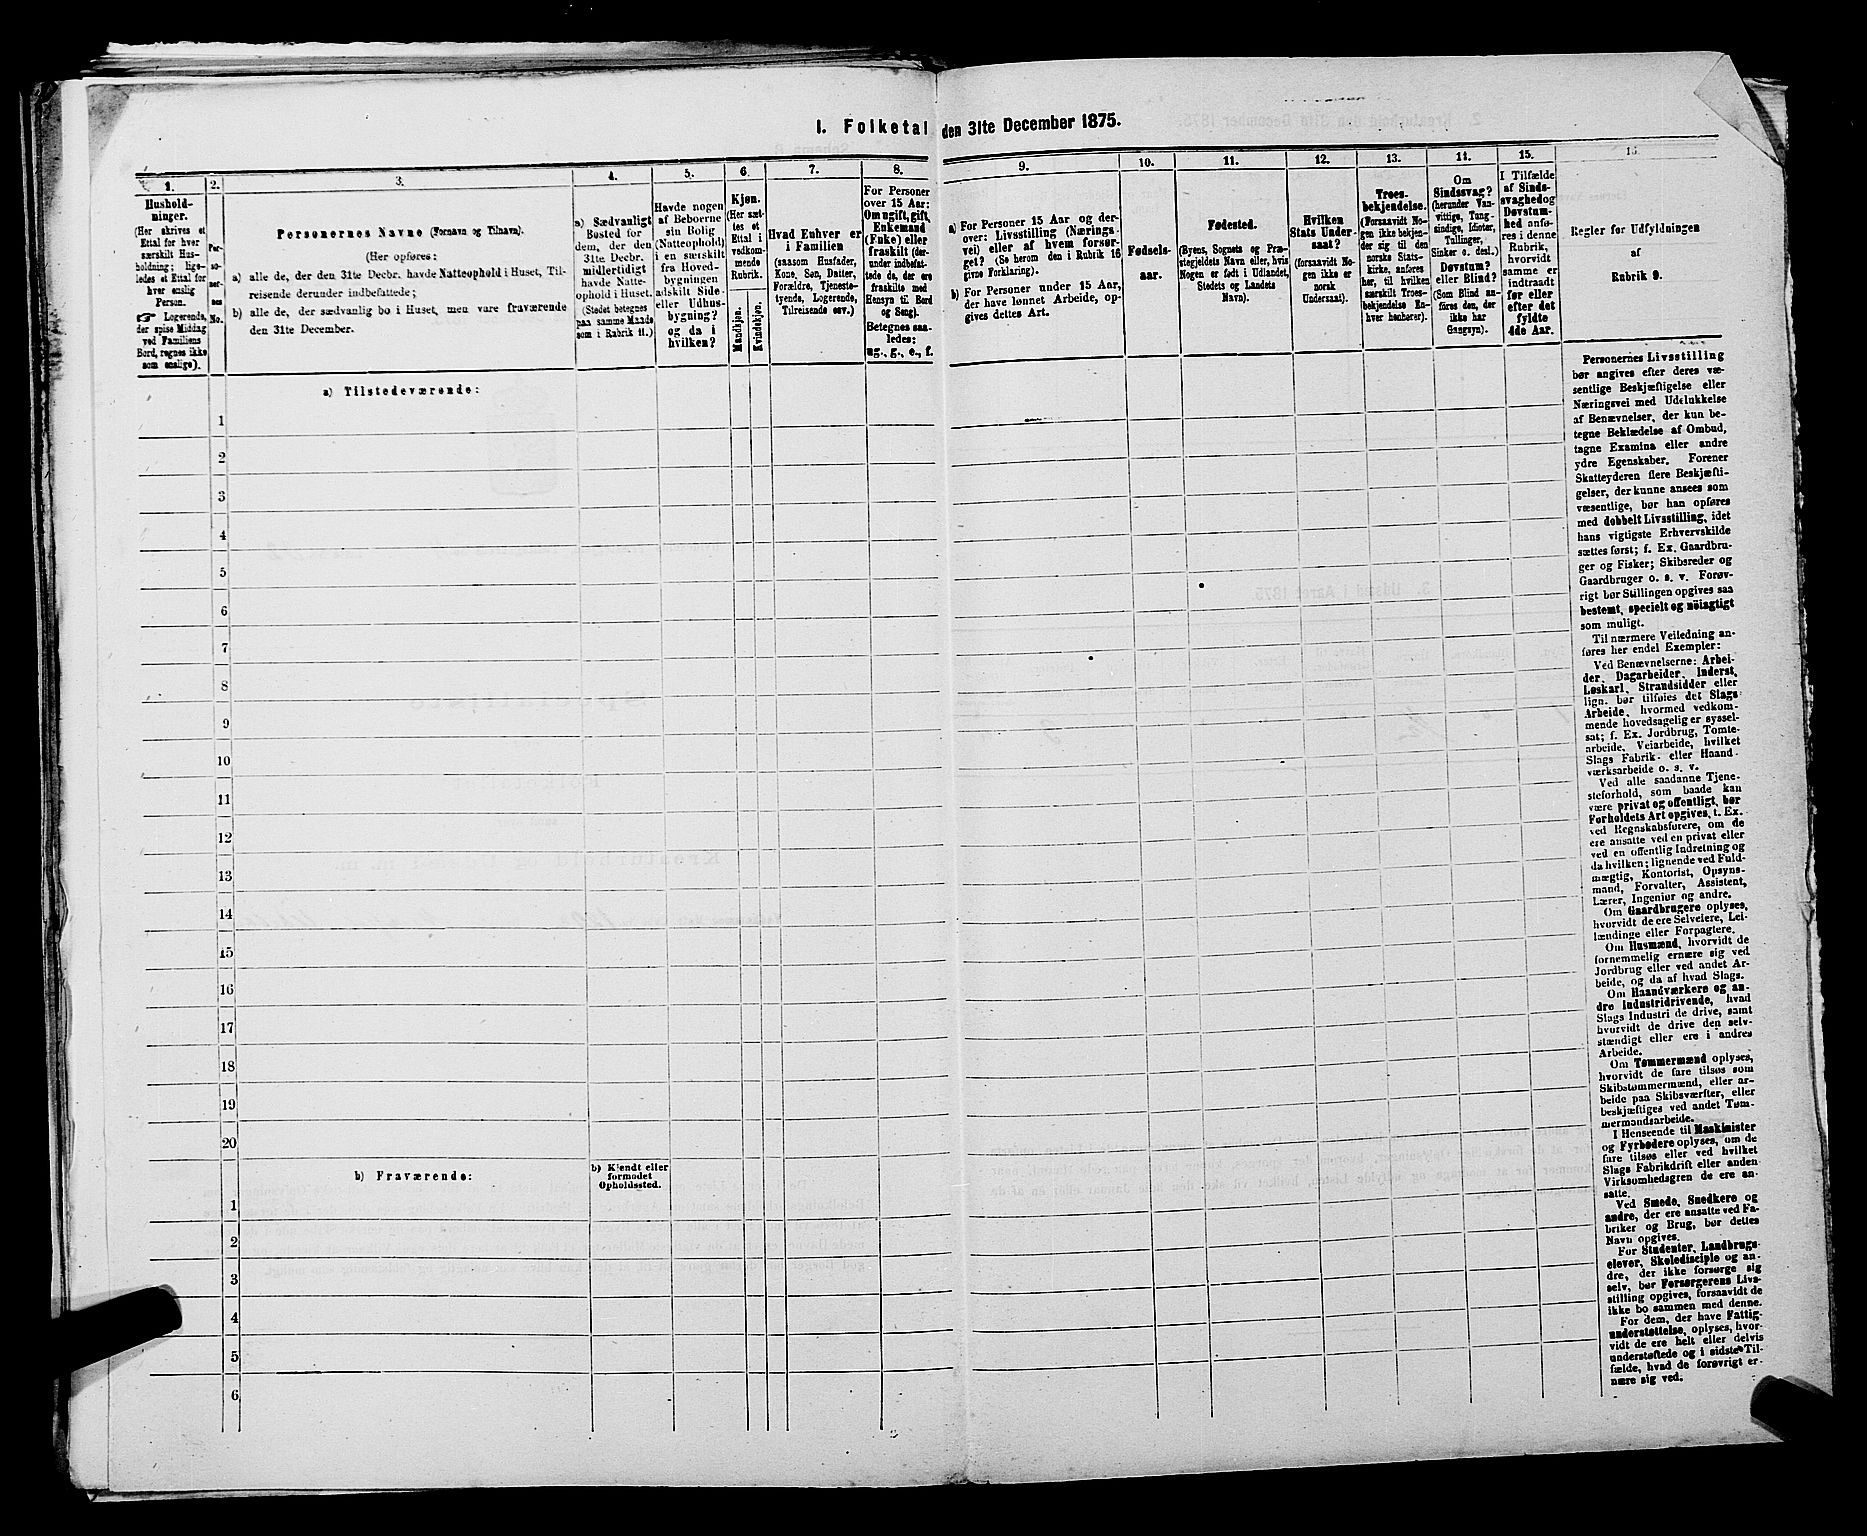 I. Folketal den 31te December 1875.
1.
Hushold-
ninger.
(Her skrives et
Ettal for hver
særskilt Hus-
holdning; lige-
ledes et Ettal for
hver enslig
Person.
☞ Logerende,
der spise Middag
ved Familiens
Bord, regnes ikke
som enslige).
2.
Per-
so-
ner-
nes
No.
3.
Personernes Navne (Fornavn og Tilnavn).
(Her opføres:
a) alle de, der den 31te Decbr. havde Natteophold i Huset, Til-
reisende derunder indbefattede;
b) alle de, der sædvanlig bo i Huset, men vare fraværende
den 31te December.
4.
a) Sædvanligt
Bosted for
dem, der den
31te Decbr.
midlertidigt
havde Natte-
ophold i Huset.
(Stedet betegnes
paa samme Maade
som i Rubrik 11.)
5.
Havde nogen
af Beboerne
sin Bolig
(Natteophold)
i en særskilt
fra Hoved-
bygningen
adskilt Side-
eller Udhus-
bygning?
og da i
hvilken?
6.
Kjøn.
(Her sæt-
tes et
Ettal i
vedkom-
mende
Rubrik.
Mandkjøn.
Kvindekjøn.
7.
Hvad Enhver er
i Familien
(saasom Husfader,
Kone, Søn, Datter,
Forældre, Tjeneste-
tyende, Logerende,
Tilreisende osv.)
8.
For Personer
over 15 Aar:
Om ugift, gift,
Enkemand
(Enke) eller
fraskilt (der-
under indbefat-
tede de, der ere
fraskilte med
Hensyn til Bord
og Seng).
Betegnes saa-
ledes:
ug., g., e., f.
9.
a) For Personer 15 Aar og der-
over: Livsstilling (Nærings-
vei) eller af hvem forsør-
get? (Se herom den i Rubrik 16
givne Forklaring).
b) For Personer under 15 Aar,
der have lønnet Arbeide, op-
gives dettes Art.
10.
Fødsels-
aar.
11.
Fødested.
(Byens, Sognets og Præ-
stegjeldets Navn eller, hvis
Nogen er født i Udlandet,
Stedets og Landets
Navn).
12.
Hvilken
Stats Under-
saat?
(forsaavidt No-
gen ikke er
norsk
Undersaat).
13.
Troes-
bekjendelse.
(Forsaavidt No-
gen ikke bekjen-
der sig til den
norske Stats-
kirke, anføres
her, til hvilken
særskilt Troes-
bekjendelse En-
hver henhører).
14.
Om
Sindssvag?
(herunder Van-
vittige, Tung-
sindige, Idioter,
Tullinger,
Sinker o. desl.)
Døvstum?
eller Blind?
(Som Blind an-
føres den, der
ikke har
Gangsyn).
15.
I Tilfælde
af Sinds-
svaghed og
Døvstum-
hed anfø-
res i denne
Rubrik,
hvorvidt
samme er
indtraadt
før eller
efter det
fyldte
4de Aar.
16.
Regler for Udfyldningen
af
Rubrik 9.
a) Tilstedeværende:
1
2
3
4
5
6
7
8
9
10
11
12
13
14
15
16
17
18
19
20
b) Fraværende:
b) Kjendt eller
formodet
Opholdssted.
1
2
3
4
5
6
Personernes Livsstilling
bør angives efter deres væ-
sentlige Beskjæftigelse eller
Næringsvei med Udelukkelse
af Benævnelser, der kun be-
tegne Beklædelse af Ombud,
tagne Examina eller andre
ydre Egenskaber. Forener
Skatteyderen flere Beskjæfti-
gelser, der kunne ansees som
væsentlige, bør han opføres
med dobbelt Livsstilling, idet
hans vigtigste Erhvervskilde
sættes først; f. Ex. Gaardbru-
ger og Fisker; Skibsreder og
Gaardbruger o. s. v. Forøv-
rigt bør Stillingen opgives saa
bestemt, specielt og nöiagtigt
som muligt.
Til nærmere Veiledning an-
føres her endel Exempler:
Ved Benævnelserne: Arbei-
der, Dagarbeider, Inderst,
Løskarl, Strandsidder eller
lign. bør tilføies det Slags
Arbeide, hvormed vedkom-
mende hovedsagelig er syssel-
sat; f. Ex. Jordbrug, Tomte-
arbeide, Veiarbeide, hvilket
Slags Fabrik- eller Haand-
værksarbeide o. s. v.
Ved alle saadanne Tjene-
steforhold, som baade kan
være privat og offentligt, bør
Forholdets Art opgives, f. Ex.
ved Regnskabsførere, om de
ere ansatte ved en privat eller
ved en offentlig Indretning og
da hvilken; lignende ved Fuld-
mægtig, Kontorist, Opsyns-
mand, Forvalter, Assistent,
Lærer, Ingeniør og andre.
Om Gaardbrugere oplyses,
hvorvidt de ere Selveiere, Lei-
lændinge eller Forpagtere.
Om Husmænd, hvorvidt de
fornemmelig ernære sig ved
Jordbrug eller ved andet Ar-
beide, og da af hvad Slags.
Om Haandværkere og an-
dre Industridrivende, hvad
Slags Industri de drive, samt
hvorvidt de drive den selv-
stændigt eller ere i andres
Arbeide.
Om Tømmermænd oplyses,
hvorvidt de fare tilsøs som
Skibstømmermænd, eller ar-
beide paa Skibsværfter, eller
beskjæftiges ved andet Tøm-
mermandsarbeide.
I Henseende til Maskinister
og Fyrbødere oplyses, om de
fare tilsøs eller ved hvilket
Slags Fabrikdrift eller anden
Virksomhedsgren de ere an-
satte.
Ved Smede, Snedkere og
andre, der ere ansatte ved Fa-
briker og Brug, bør dettes
Navn opgives.
For Studenter, Landbrugs-
elever, Skoledisciple og an-
dre, der ikke forsørge sig
selv, bør Forsørgerens Livs-
stilling opgives, forsaavidt de
ikke bo sammen med denne.
For dem, der have Fattig-
understøttelse, oplyses, hvor-
vidt de ere helt eller delvis
understøttede og i sidste Til-
fælde, hvad de forøvrigt er-
nære sig ved.